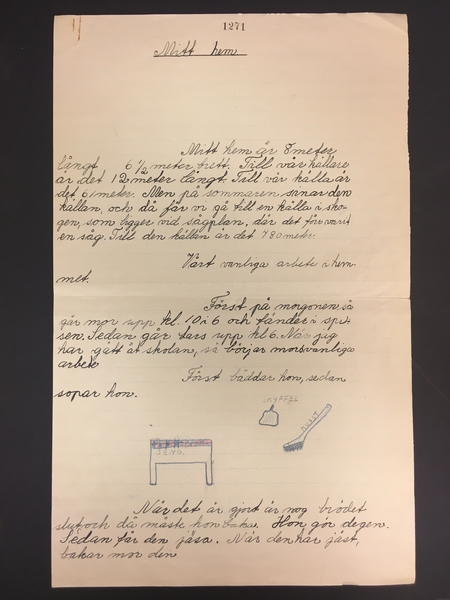 1271
Mitt hem
Mitt hem är 8 meter
långt 6 1/2 meter brett. Till vår källare
är det 12 meter långt. Till vår källa är
det 61 meter. Men på sommaren sinar den
källan, och då får vi gå till en källa i sko-
gen, som ligger vid sågplan, där det förr varit
en såg. Till den källan är det 780 meter.
Vårt vanliga arbete i hem-
met.
Först på morgonen, så
går mor upp kl. 10 i 6 och tänder i spi-
sen. Sedan går fars upp kl 6. När jag
har gått åt skolan, så börjar mors vanliga
arbete
Först bäddar hon, sedan
sopar hon.
SKYFFEL
KVAST
SENG.
När det är gjort är nog brödet
slut och då måste hon baka. Hon gör degen.
Sedan får den jäsa. När den har jäst,
bakar mor den